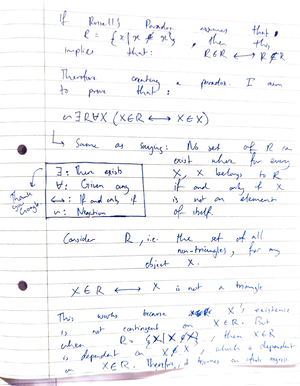 If Russell's Paradox assumes that
R = {x | x ∉ x}, then this
implies that: R∈R ⟷ R∉R
Therefore creating a paradox. I aim
to prove that:
~∃R∀X (X∈R ⟷ X∈X)
↳ Same as saying: No set of R can
exist where for every
X, X belongs to R
if and only if X
is not an element
of itself.
∃: There exists
∀: Given any
⟷: If and only if
~: Negation
Thank
you
Google
Consider R, i.e. the set of all
non-triangles, for any
object X.
X∈R ⟷ X is not a triangle
This works because X's existence
is not contingent on X∈R. But
when R = {X|X∉X}, then X∈R
is dependent on X∉X, which is dependent
on X∈R. Therefore, it becomes an infinite regress